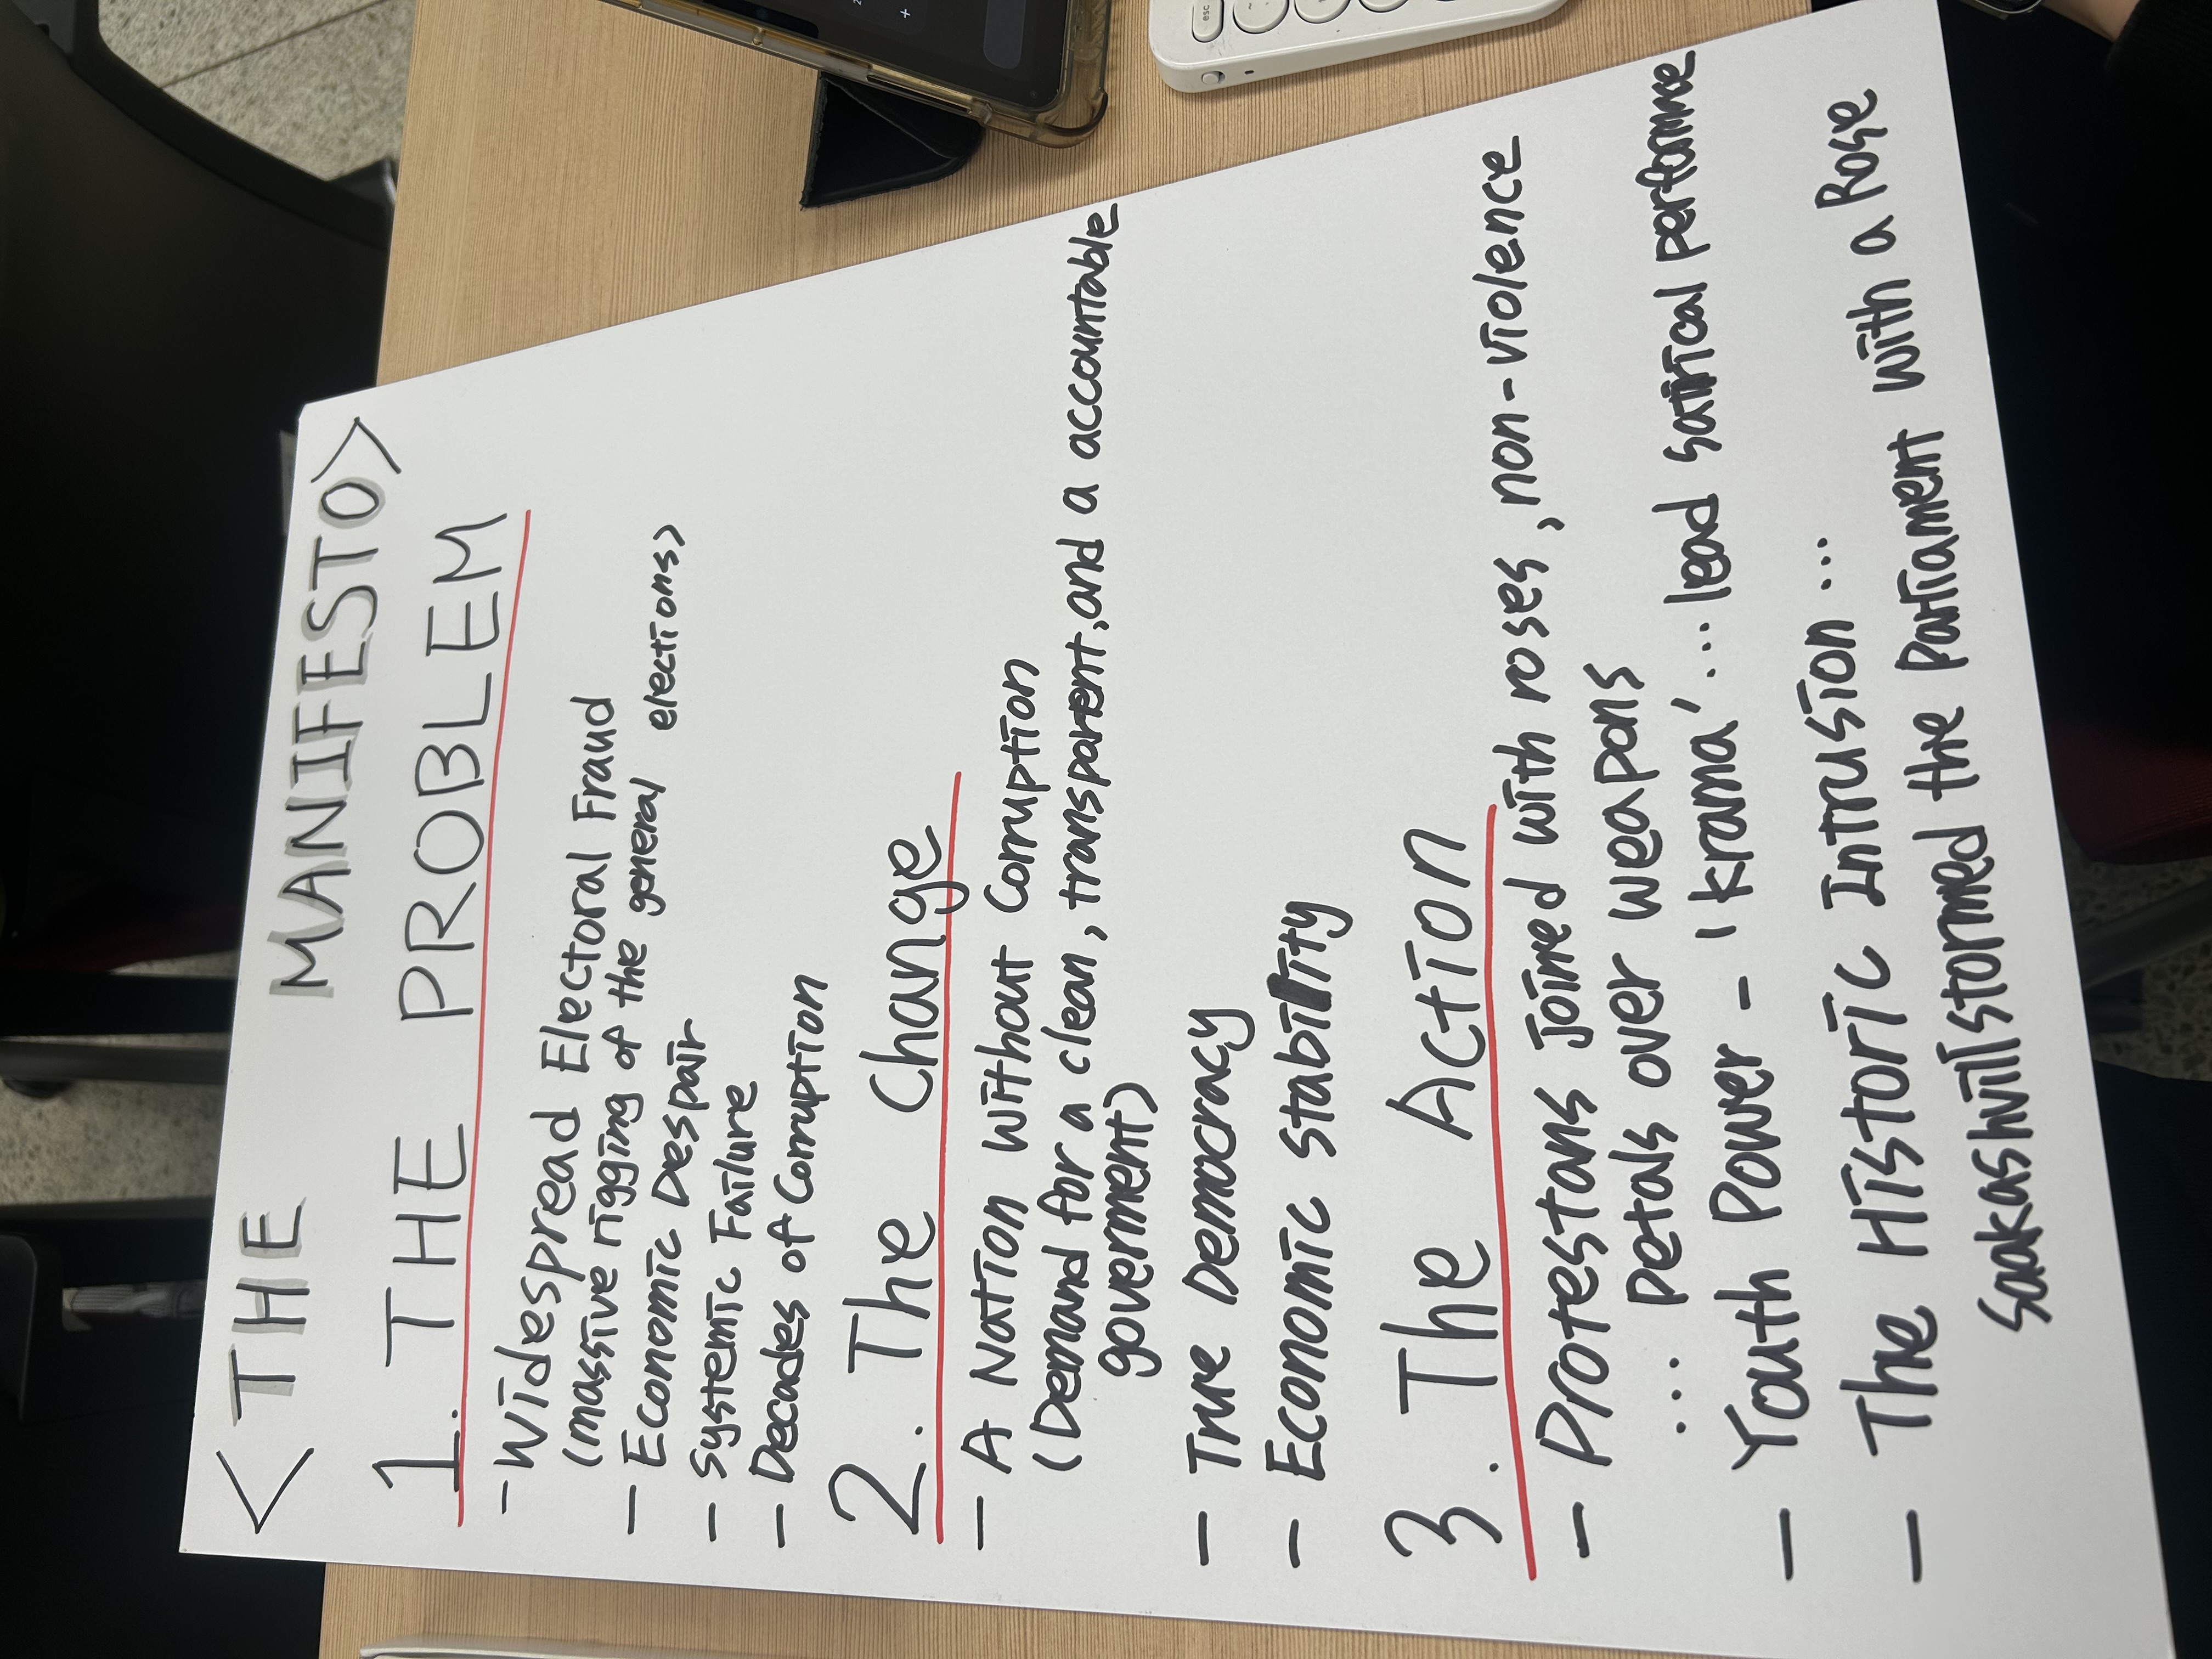 <THE MANIFESTO>
1. THE PROBLEM
- Widespread Electoral Fraud
(massive rigging of the general elections)
- Economic Despair
- Systemic Failure
- Decades of Corruption
2. The Change
- A Nation Without Corruption
(Demand for a clean, transparent, and a accountable
government)
- True Democracy
- Economic stability
3. The Action
- Protestans Joined with roses, non-violence
... petals over weapons
- Youth Power - 'kmara' ... lead satirical performance
- The Historic Intrusion ...
saakashvili stormed the parliament with a Rose
esc